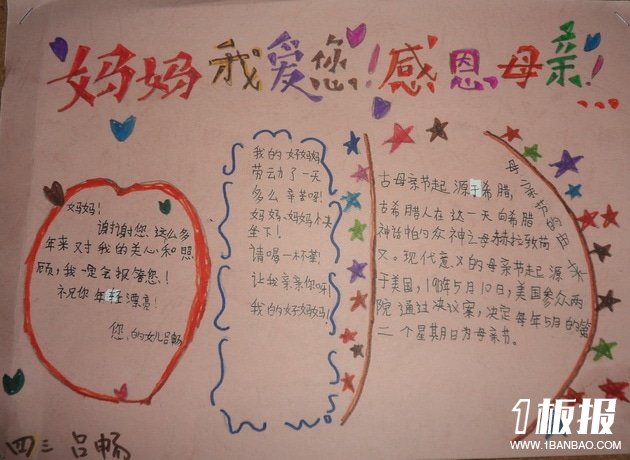 妈妈我爱您!感恩母亲!...
妈妈!
谢谢您这么多
年来对我的关心和照
顾,我一定会报答您!
祝你年轻漂亮!
您的女儿吕畅
我的好妈妈
劳动了一天
多么辛苦呀!
妈妈,妈妈快
坐下!
请喝一杯茶!
让我亲亲你呀!
我的好妈妈!
母亲节的由来
古母亲节起源于希腊,
古希腊人在这一天向希腊
神话中众神之母赫拉致
义。现代意义的母亲节起源
于美国,1913年5月10日,美国参众两
院通过决议案,决定每年5月的第
二个星期日为母亲节。
四三 吕畅
1板报
WWW.1BANBAO.COM